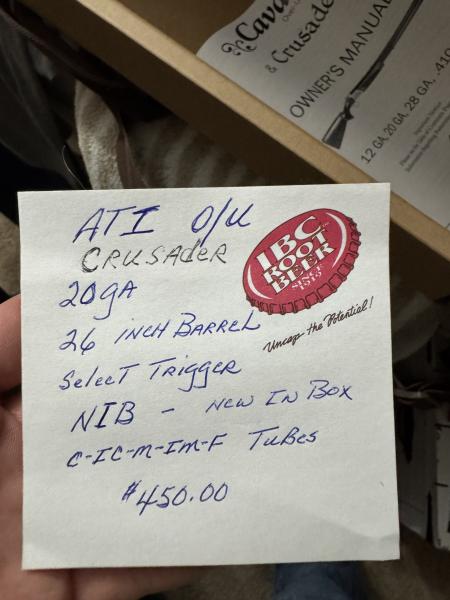 Cava
& Crusade
OWNER'S MANUAL
12 GA, 20 GA, 28 GA, .410
ATI O/U
CRUSADER
20GA
26 INCH BARREL
Select Trigger
NIB - New In Box
C-IC-M-IM-F Tubes
$450.00
IBC
ROOT
BEER
SINCE
1919
Uncap the Potential!